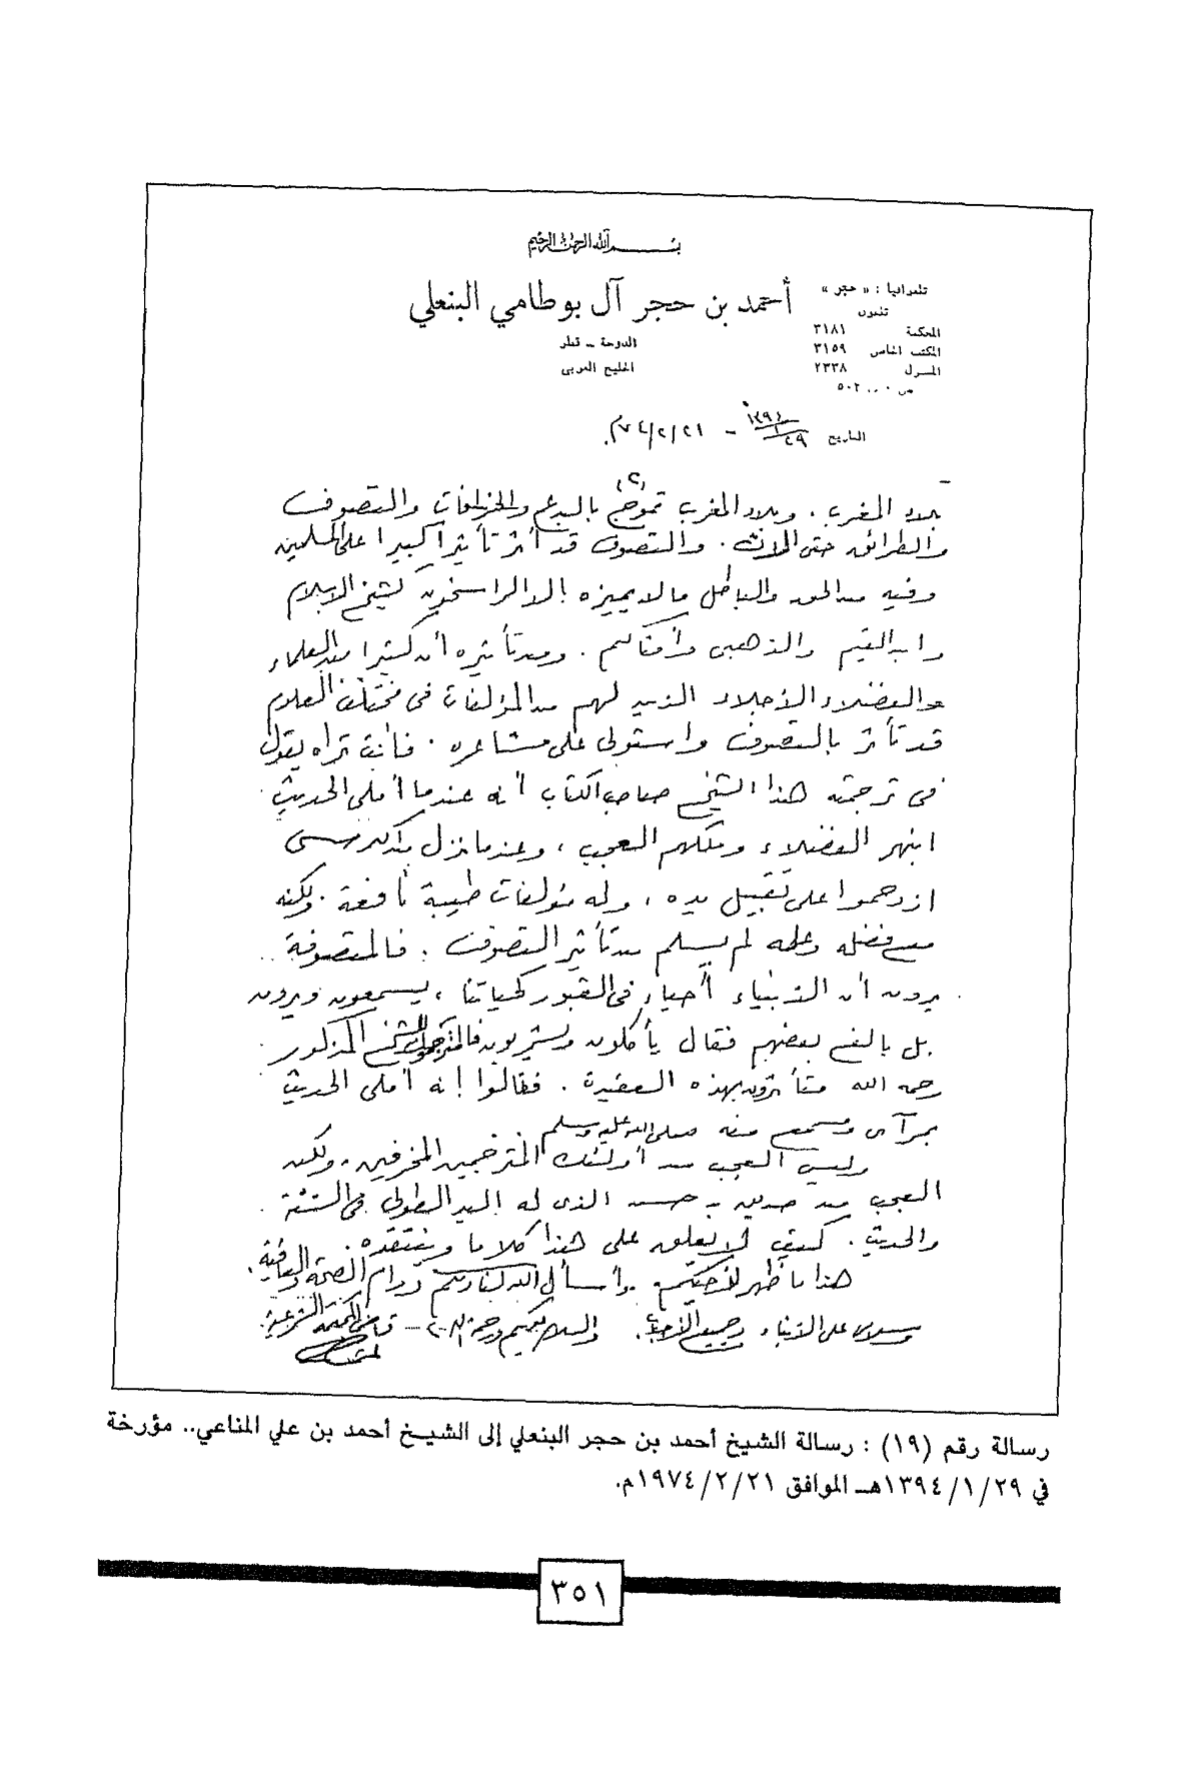 بسم الله الرحمن الرحيم
أحمد بن حجر آل بوطامي البنعلي
الدوحة – قطر
الخليج العربي
تلغرافيا : « حجر »
تلفون
المحكمة ٣١٨١
المكتب الخاص ٣١٥٩
المنزل ٢٣٣٨
ص . ب ٥٠٢
التاريخ ٢٩/١/١٣٩٤هـ – ٢١/٢/٧٤م
(٢)
بلاد المغرب . وبلاد المغرب تموج بالبدع والخرافات والتصوف
والطرائق حتى الآن . والتصوف قد أثر تأثيرا كبيرا على المسلمين
وفيه من الحق والباطل ما لا يميزه إلا الراسخون كشيخ الإسلام
وابن القيم والذهبي وأمثالهم . ومن تأثيره أن كثيرا من العلماء
والفضلاء الأجلاء الذين لهم من المؤلفات في مختلف العلوم
قد تأثر بالتصوف واستولى على مشاعره . فأنت تراه يقول
في ترجمته هذا الشيخ صاحب الكتاب أنه عندما أملى الحديث
انبهر الفضلاء وملكهم العجب ، وعندما نزل
ازدحموا على تقبيل يده ، وله مؤلفات طيبة نافعة . ولكنه
مع فضله وعلمه لم يسلم من تأثير التصوف . فالمتصوفة
يرون أن الأنبياء أحياء في القبور كحياتنا ، يسمعون ويرون
بل بالغ بعضهم فقال يأكلون ويشربون فالمترجمون للشيخ المذكور
رحمه الله متأثرون بهذه العقيدة . فقالوا إنه أملى الحديث
بمرآى ومسمع منه صلى الله عليه وسلم
وليس العجب من أولئك المترجمين المخرفين . ولكن
العجب من صديق حسن الذي له اليد الطولى في السنة
والحديث . كيف لا يعلق على هذا كلاما وينتقده .
هذا ما ظهر لأخيكم . وأسأل الله لنا ولكم دوام الصحة والعافية .
وسلامي على الأبناء وجميع الأحباب . والسلام عليكم ورحمة الله – قاضي المحكمة الشرعية
رسالة رقم (١٩) : رسالة الشيخ أحمد بن حجر البنعلي إلى الشيخ أحمد بن علي المناعي.. مؤرخة
في ٢٩/١/١٣٩٤هـ الموافق ٢١/٢/١٩٧٤م.
٣٥١